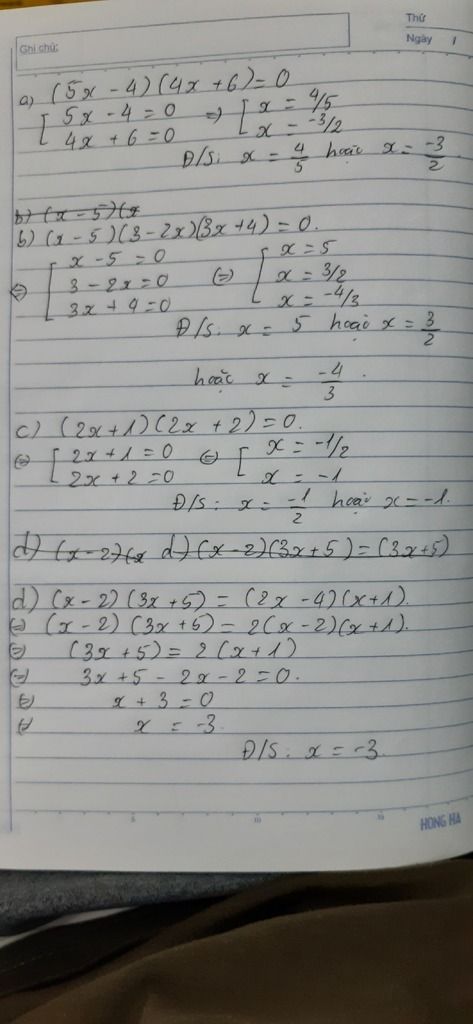 Thứ
Ngày 1
Ghi chú:
a) (5x - 4)(4x + 6) = 0
[ 5x - 4 = 0 => [ x = 4/5
4x + 6 = 0 x = -3/2
Đ/S: x = 4/5 hoặc x = -3/2
b) (x - 5)(x
b) (x - 5)(3 - 2x)(3x + 4) = 0.
x - 5 = 0 x = 5
<=> [ 3 - 2x = 0 (=) [ x = 3/2
3x + 4 = 0 x = -4/3
Đ/S: x = 5 hoặc x = 3/2
hoặc x = -4/3.
c) (2x + 1)(2x + 2) = 0.
(=) [ 2x + 1 = 0 (=) [ x = -1/2
2x + 2 = 0 x = -1
Đ/S: x = -1/2 hoặc x = -1.
d) (x - 2)(x d) (x - 2)(3x + 5) = (3x + 5)
d) (x - 2)(3x + 5) = (2x - 4)(x + 1).
(=) (x - 2)(3x + 5) = 2(x - 2)(x + 1).
(=) (3x + 5) = 2(x + 1)
(=) 3x + 5 - 2x - 2 = 0.
(=) x + 3 = 0
(=) x = -3.
Đ/S: x = -3.
5 10 15
HONG HA